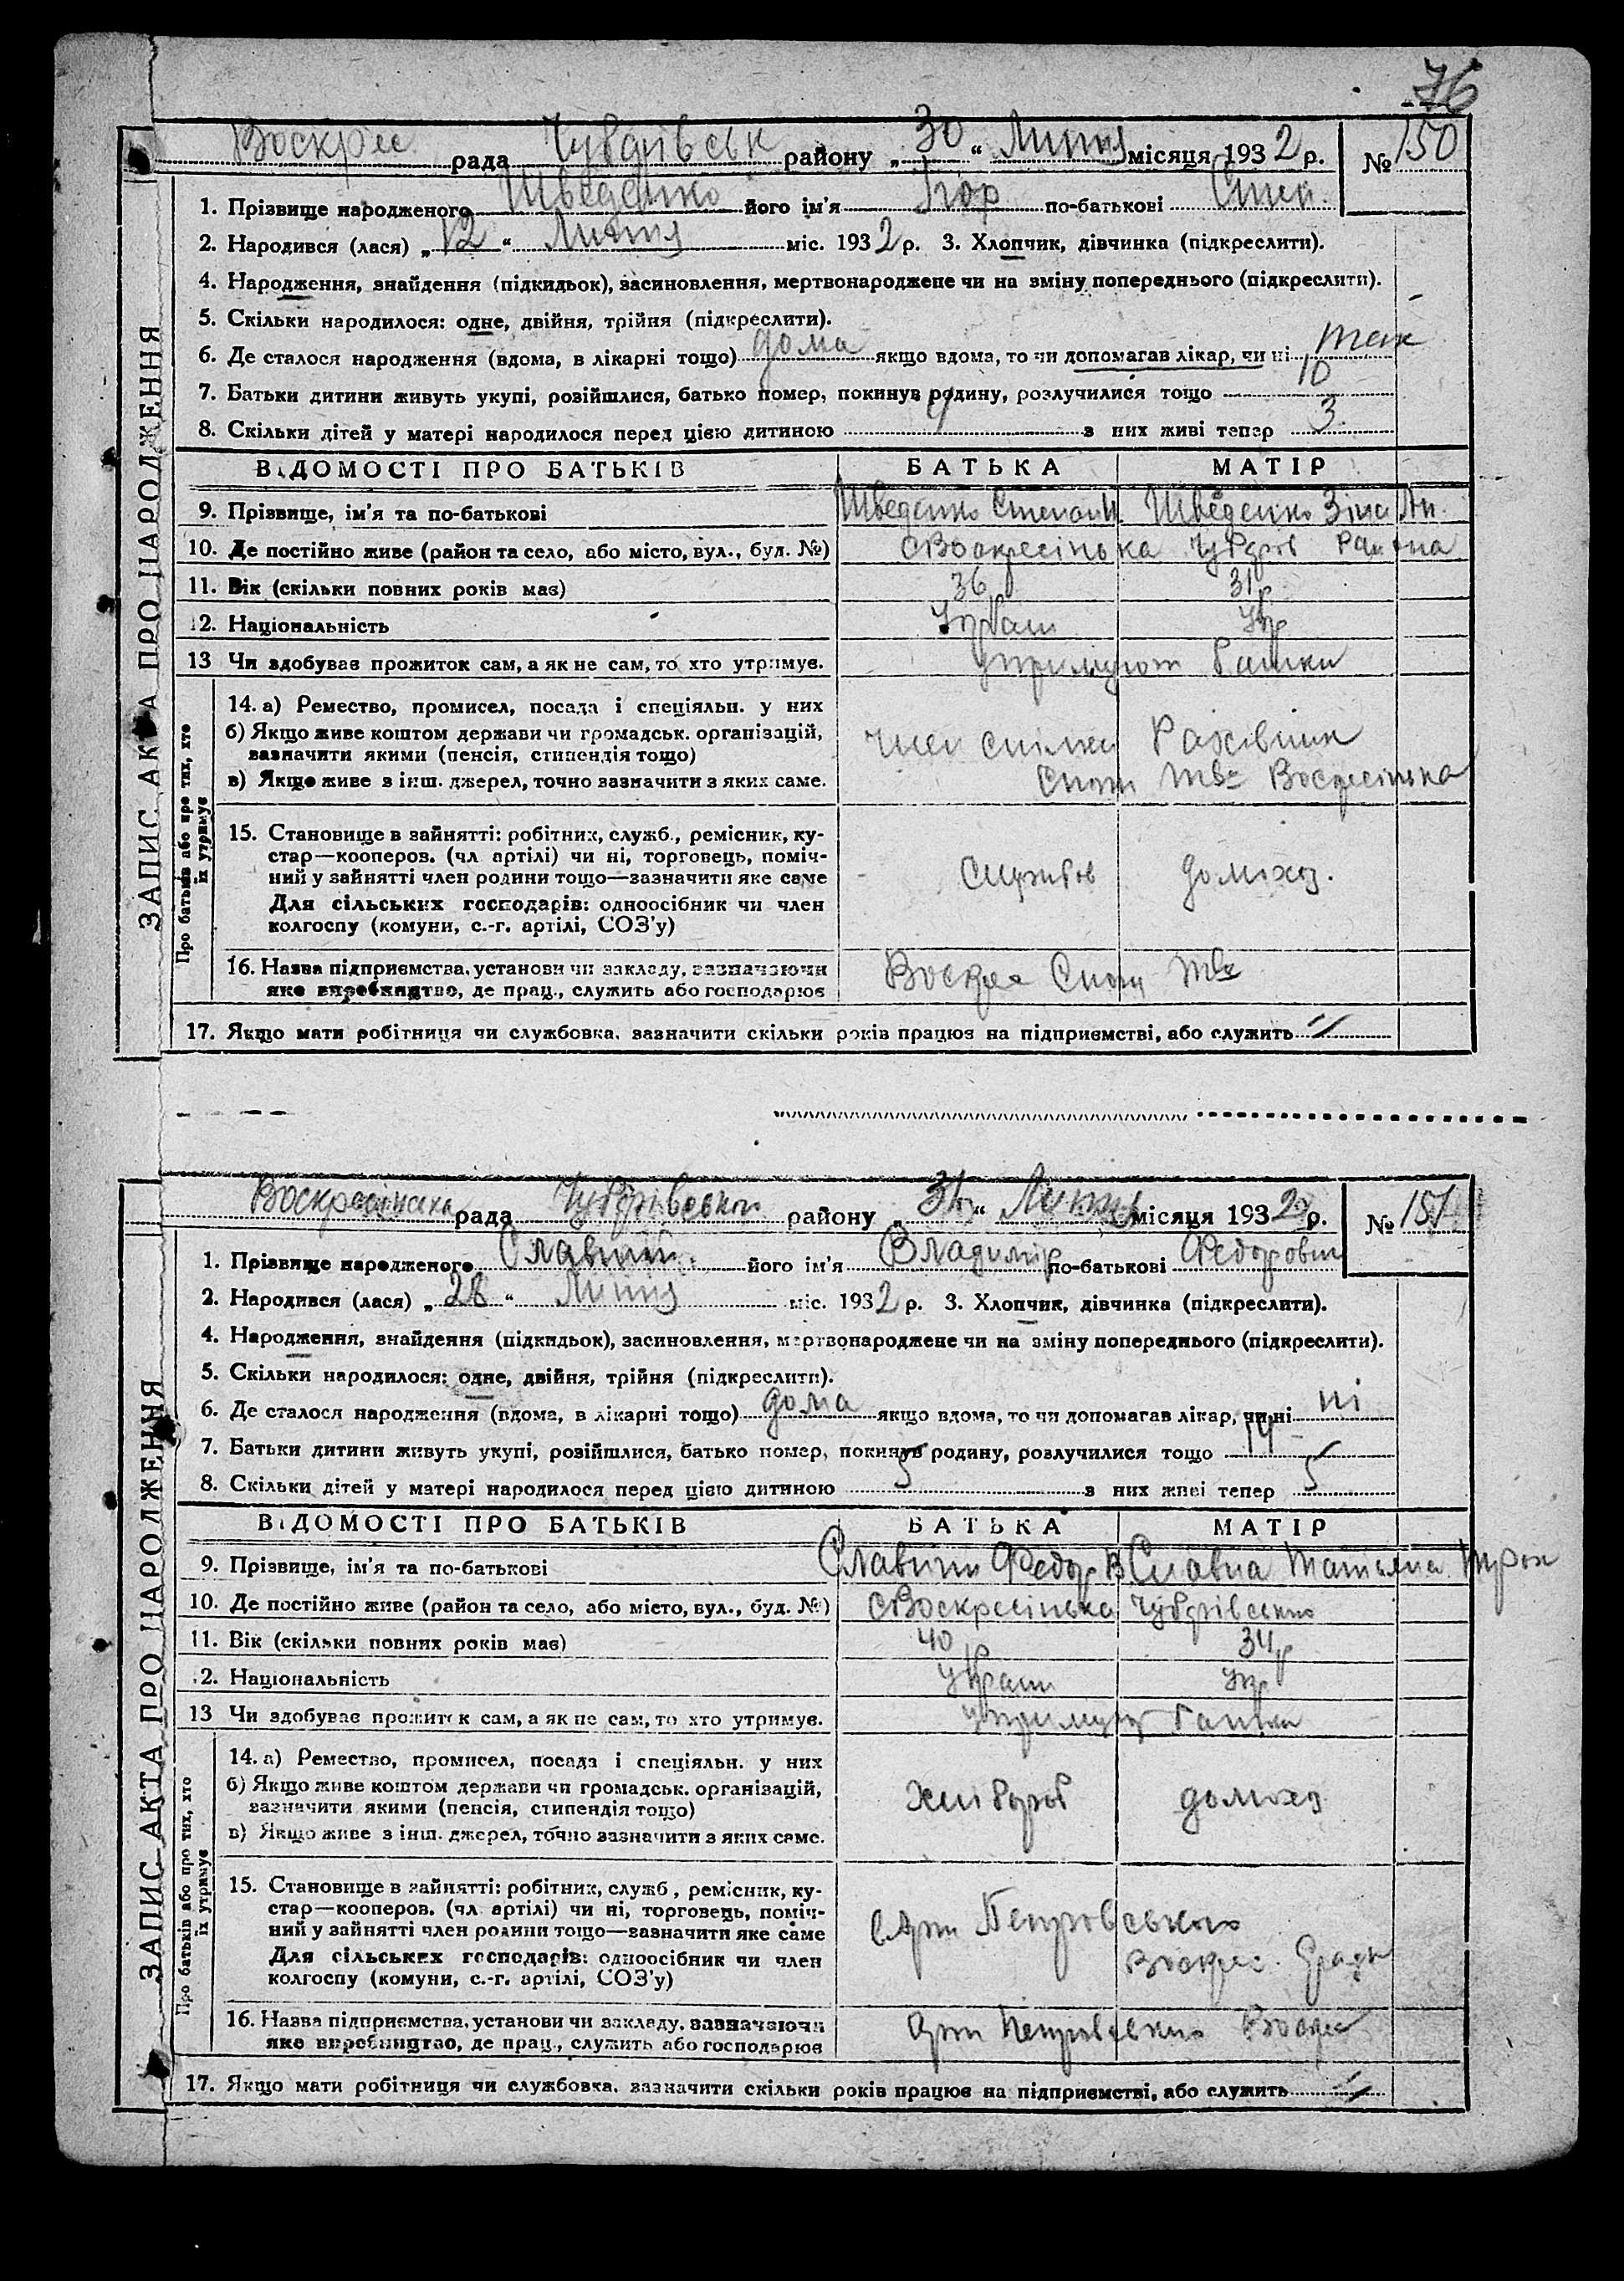 76
ЗАПИС АКТА ПРО НАРОДЖЕННЯ
Воскрес рада Чубарівськ району „30“ Липня місяця 1932 р. № 150
1. Прізвище народженого Шведенко його ім'я Ігор по-батькові Степ.
2. Народився (лася) „12“ Липня міс. 1932 р. 3. Хлопчик, дівчинка (підкреслити).
4. Народження, знайдення (підкидьок), засиновлення, мертвонароджене чи на зміну попереднього (підкреслити).
5. Скільки народилося: одне, двійня, трійня (підкреслити).
6. Де сталося народження (вдома, в лікарні тощо) дома якщо вдома, то чи допомагав лікар, чи ні так
7. Батьки дитини живуть укупі, розійшлися, батько помер, покинув родину, розлучилися тощо 10
8. Скільки дітей у матері народилося перед цією дитиною 4 з них живі тепер 3
ВІДОМОСТІ ПРО БАТЬКІВ БАТЬКА МАТІР
9. Прізвище, ім'я та по-батькові Шведенко Степан И. Шведенко Зіна
10. Де постійно живе (район та село, або місто, вул., буд. №) с Воскресінька Чубарів района
11. Вік (скільки повних років має) 36 р 31 р
12. Національність Україн Укр
13 Чи здобував прожиток сам, а як не сам, то хто утримує. утримуют батки
Про батьків або про тих, хто їх утримує
14. а) Ремество, промисел, посада і спеціяльн. у них
б) Якщо живе коштом держави чи громадськ. організацій,
зазначити якими (пенсія, стипендія тощо) член спілки Рахівник
в) Якщо живе з інш. джерел, точно зазначити з яких саме. Спож тва Воскресінька
15. Становище в зайнятті: робітник, служб., ремісник, ку-
стар—кооперов. (чл артілі) чи ні, торговець, поміч-
ний у зайнятті член родини тощо—зазначити яке саме Службов домохоз.
Для сільських господарів: одноосібник чи член
колгоспу (комуни, с.-г. артілі, СОЗ'у)
16. Назва підприємства, установи чи закладу, зазначаючи
яке виробництво, де прац., служить або господарює Воскрес Спож тва
17. Якщо мати робітниця чи службовка, зазначити скільки років працює на підприємстві, або служить
ЗАПИС АКТА ПРО НАРОДЖЕННЯ
Воскресінська рада Чубарівськои району „31“ Липня місяця 1932 р. № 151
1. Прізвище народженого Славний його ім'я Владимір по-батькові Федорович
2. Народився (лася) „28“ Липня міс. 1932 р. 3. Хлопчик, дівчинка (підкреслити).
4. Народження, знайдення (підкидьок), засиновлення, мертвонароджене чи на зміну попереднього (підкреслити).
5. Скільки народилося: одне, двійня, трійня (підкреслити).
6. Де сталося народження (вдома, в лікарні тощо) дома якщо вдома, то чи допомагав лікар, чи ні ні
7. Батьки дитини живуть укупі, розійшлися, батько помер, покинув родину, розлучилися тощо 14
8. Скільки дітей у матері народилося перед цією дитиною 5 з них живі тепер 5
ВІДОМОСТІ ПРО БАТЬКІВ БАТЬКА МАТІР
9. Прізвище, ім'я та по-батькові Славний Федор В. Славна Татьяна
10. Де постійно живе (район та село, або місто, вул., буд. №) с Воскресінька Чубарівського
11. Вік (скільки повних років має) 40 р 34 р
12. Національність Україн Укр
13 Чи здобував прожиток сам, а як не сам, то хто утримує. утримуют батки
Про батьків або про тих, хто їх утримує
14. а) Ремество, промисел, посада і спеціяльн. у них
б) Якщо живе коштом держави чи громадськ. організацій,
зазначити якими (пенсія, стипендія тощо) хлібороб домохоз
в) Якщо живе з інш. джерел, точно зазначити з яких саме.
15. Становище в зайнятті: робітник, служб., ремісник, ку-
стар—кооперов. (чл артілі) чи ні, торговець, поміч-
ний у зайнятті член родини тощо—зазначити яке саме Петровського
Для сільських господарів: одноосібник чи член Воскрес.
колгоспу (комуни, с.-г. артілі, СОЗ'у)
16. Назва підприємства, установи чи закладу, зазначаючи
яке виробництво, де прац., служить або господарює Арт Петровського Воскрес
17. Якщо мати робітниця чи службовка, зазначити скільки років працює на підприємстві, або служить